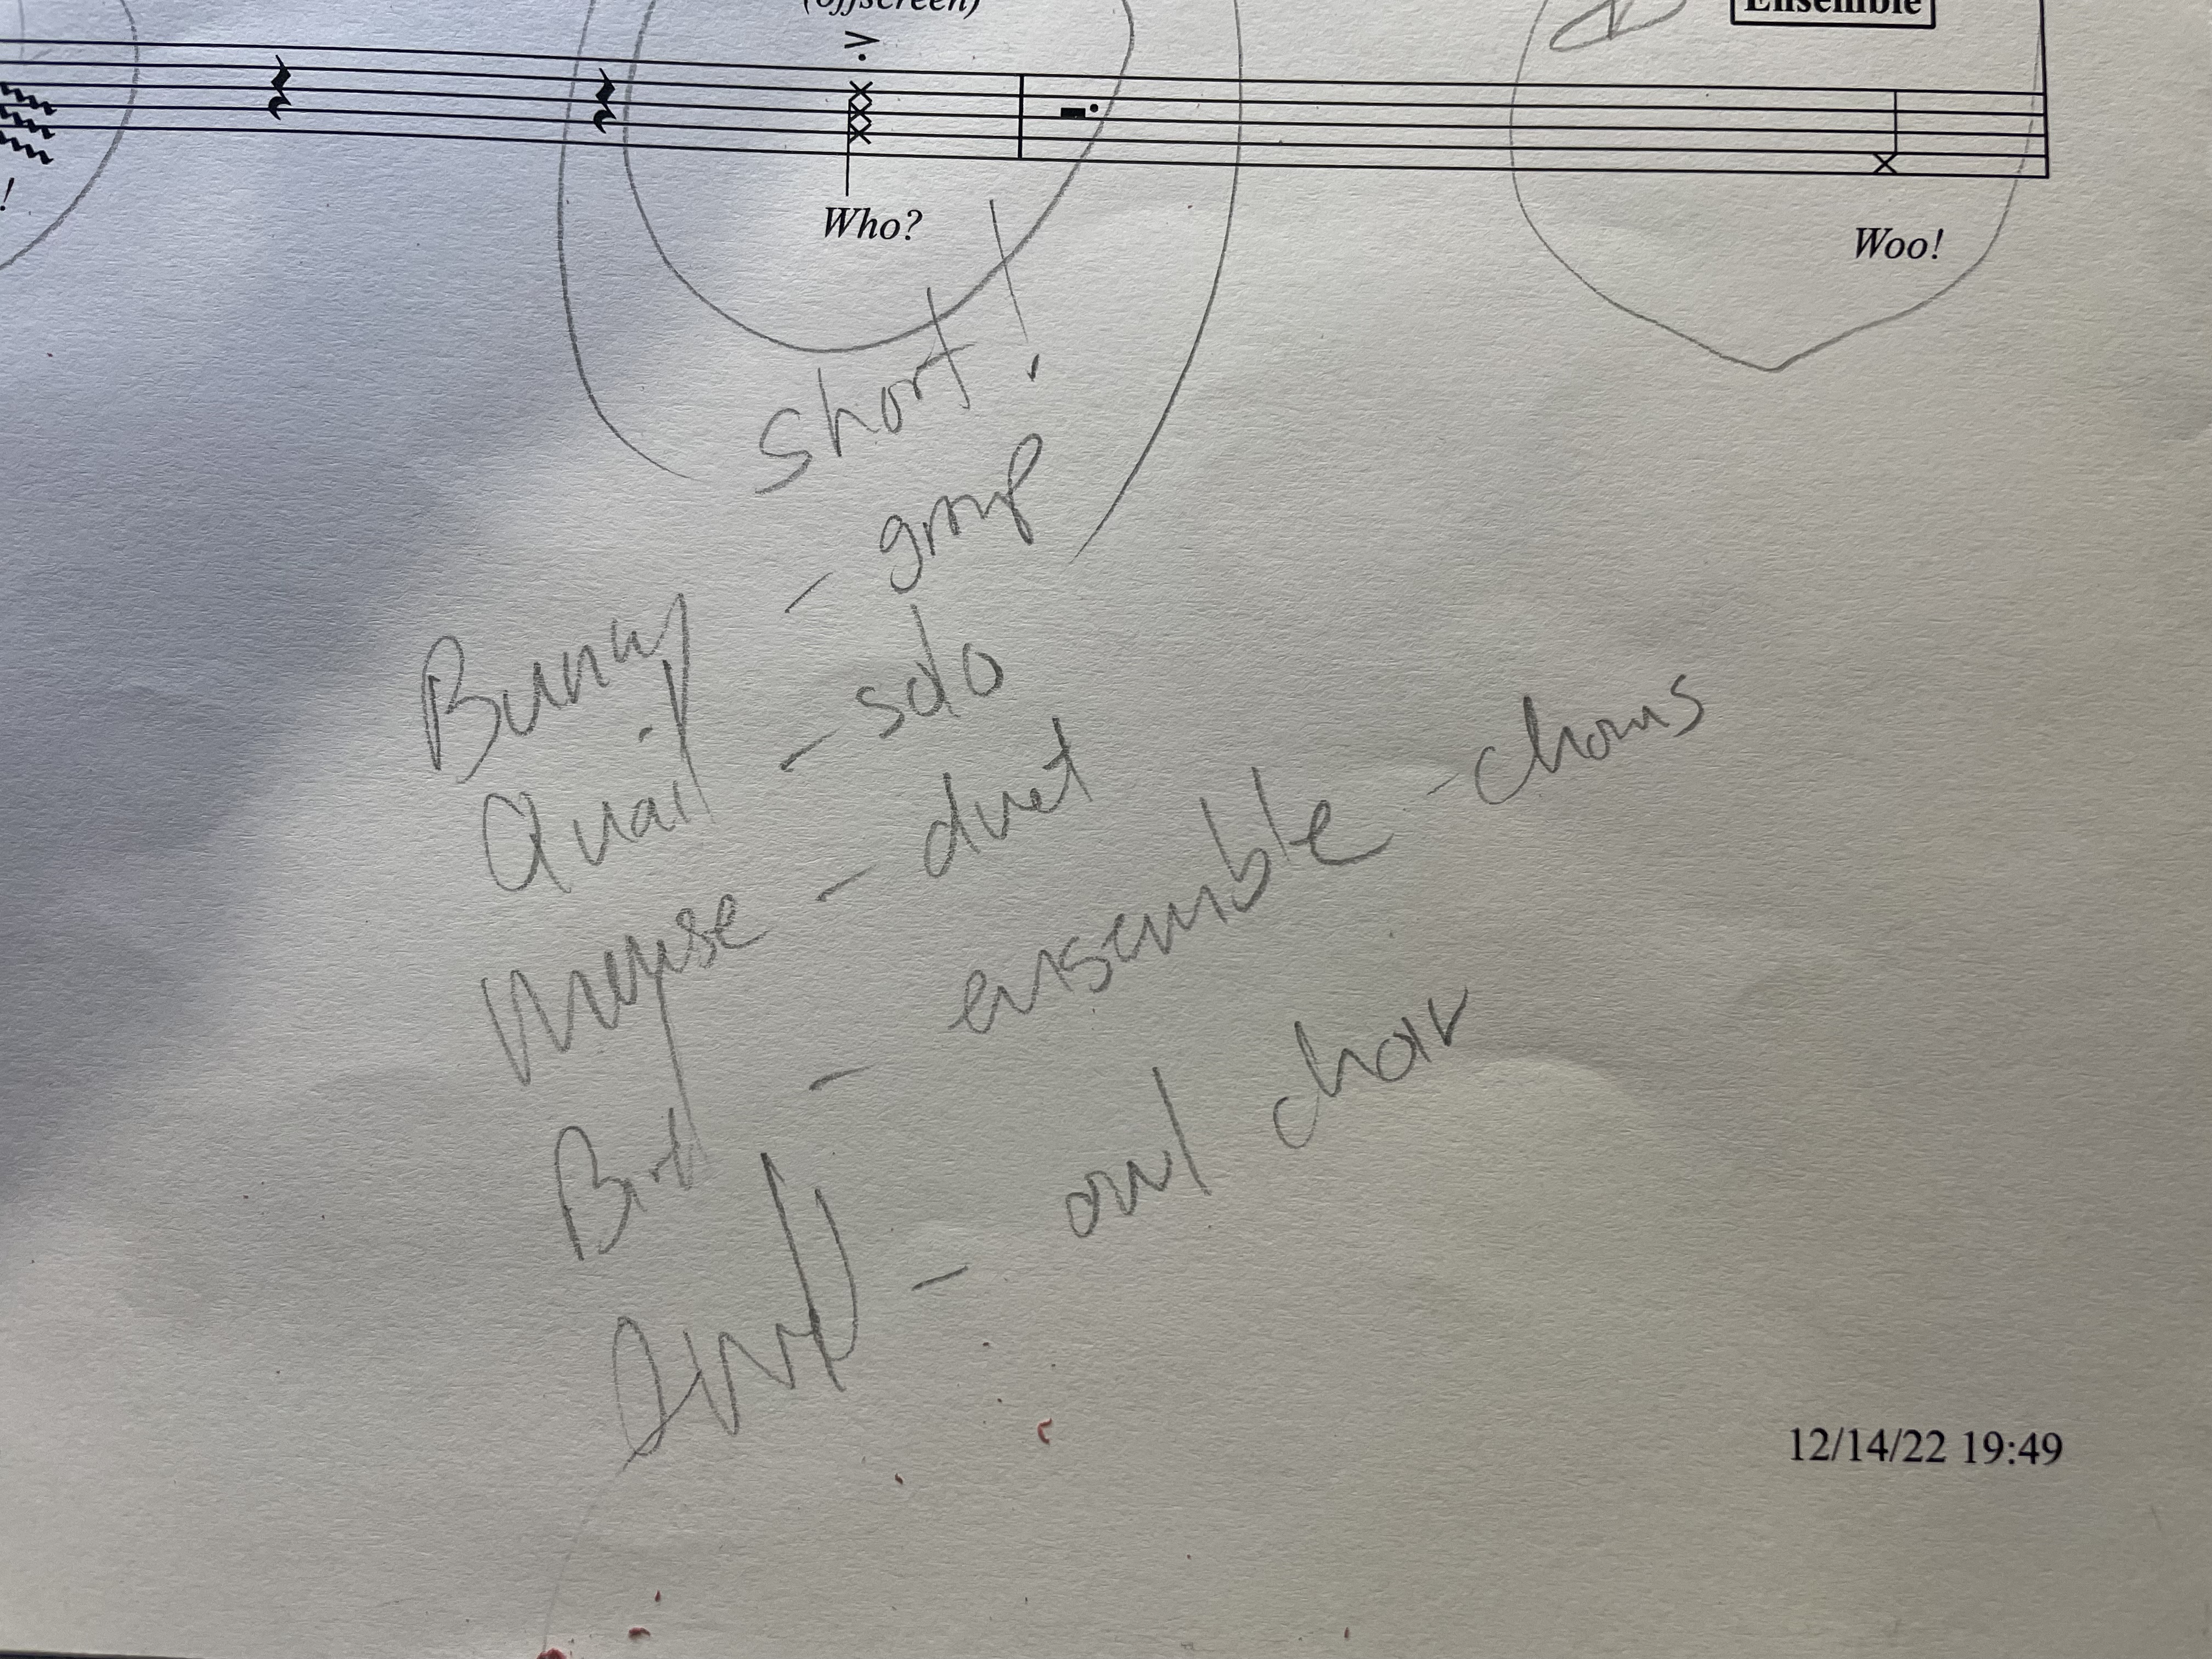 (offscreen)
Ensemble
!
Who?
Woo!
short!
Bunny - group
Quail - solo
Mouse - duet
Bird - ensemble - chorus
Owl - owl choir
12/14/22 19:49